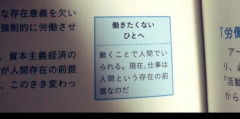 な存在意義を欠い
強制的に労働させ
資本主義経済の
が人間存在の前提
、このさき変わっ
働きたくない
ひとへ
働くことで人間でい
られる。現在、仕事は
人間という存在の前
提なのだ
「労働